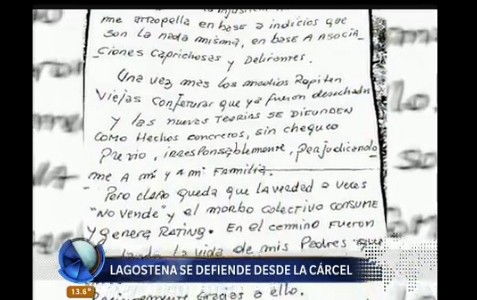 me atropella en base a indicios que
son la nada misma, en base A ASOCIA
Ciones Caprichosas y Delirantes.
Una vez mas los medios Repiten
Viejas Conjeturas que ya fueron desechadas
y las nuevas TEORIAS SE DIFUNDEN
COMO Hechos concretos, sin chequeo
Previo, irresponsablemente, perjudicando
me A mí y A mi FAMILIA.
Pero claro queda que la verdad a veces
"NO VENDE" y el morbo colectivo CONSUME
y genera RATING. En el camino FUERON
la vida de mis Padres que
LAGOSTENA SE DEFIENDE DESDE LA CÁRCEL
13.6°
Gracias a ello.